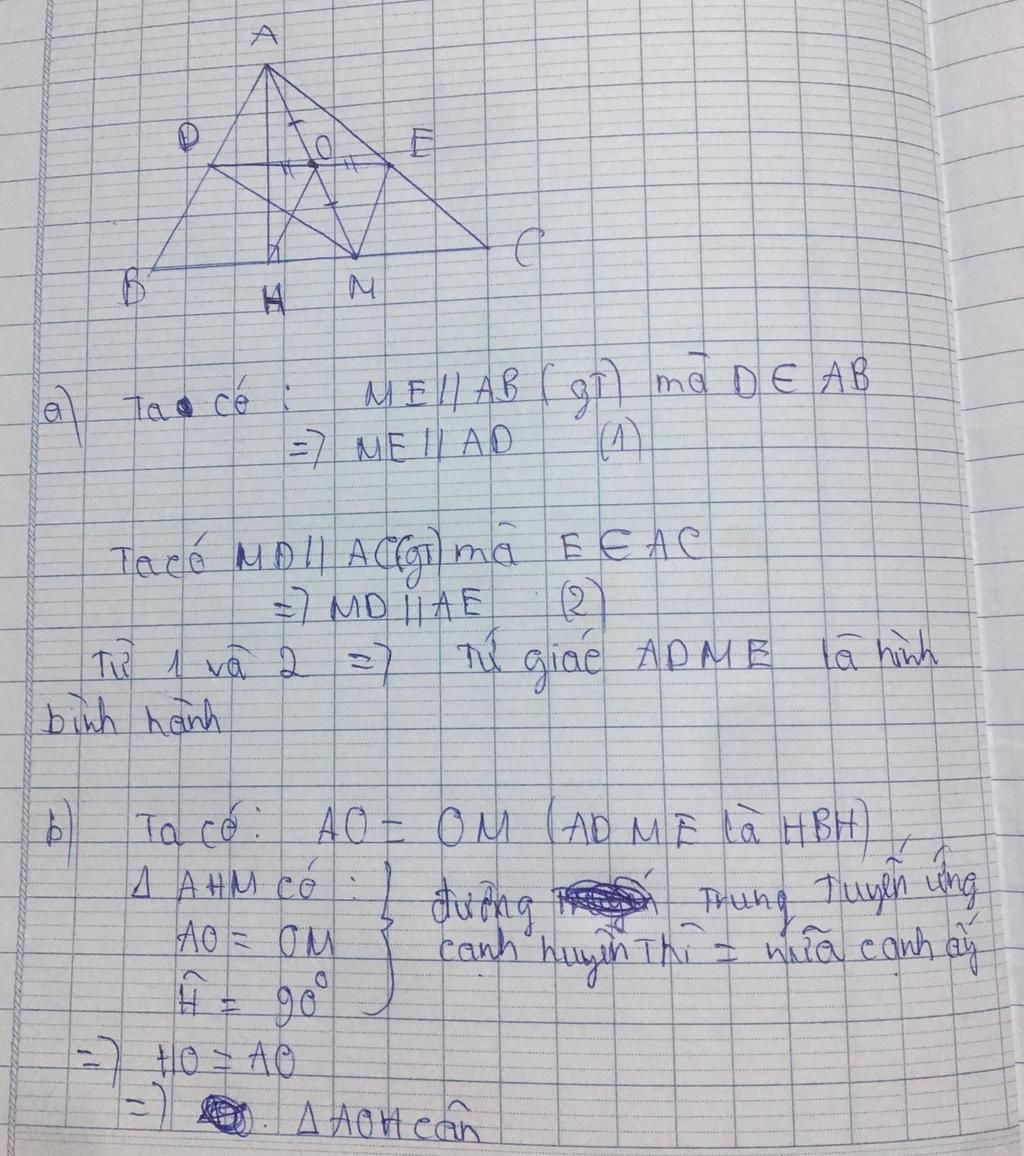 A
D O E
B H M C
a) Ta có : ME // AB (gT) mà D ∈ AB
=> ME // AD (1)
Ta có MD // AC (gT) mà E ∈ AC
=> MD // AE (2)
Từ 1 và 2 => Tứ giác ADME là hình
bình hành
b) Ta có: AO = OM (ADME là HBH)
Δ AHM có : đường Trung Tuyến ứng
AO = OM cạnh huyền Thì = nửa cạnh ấy
Ĥ = 90°
=> HO = AO
=> Δ AOH cân